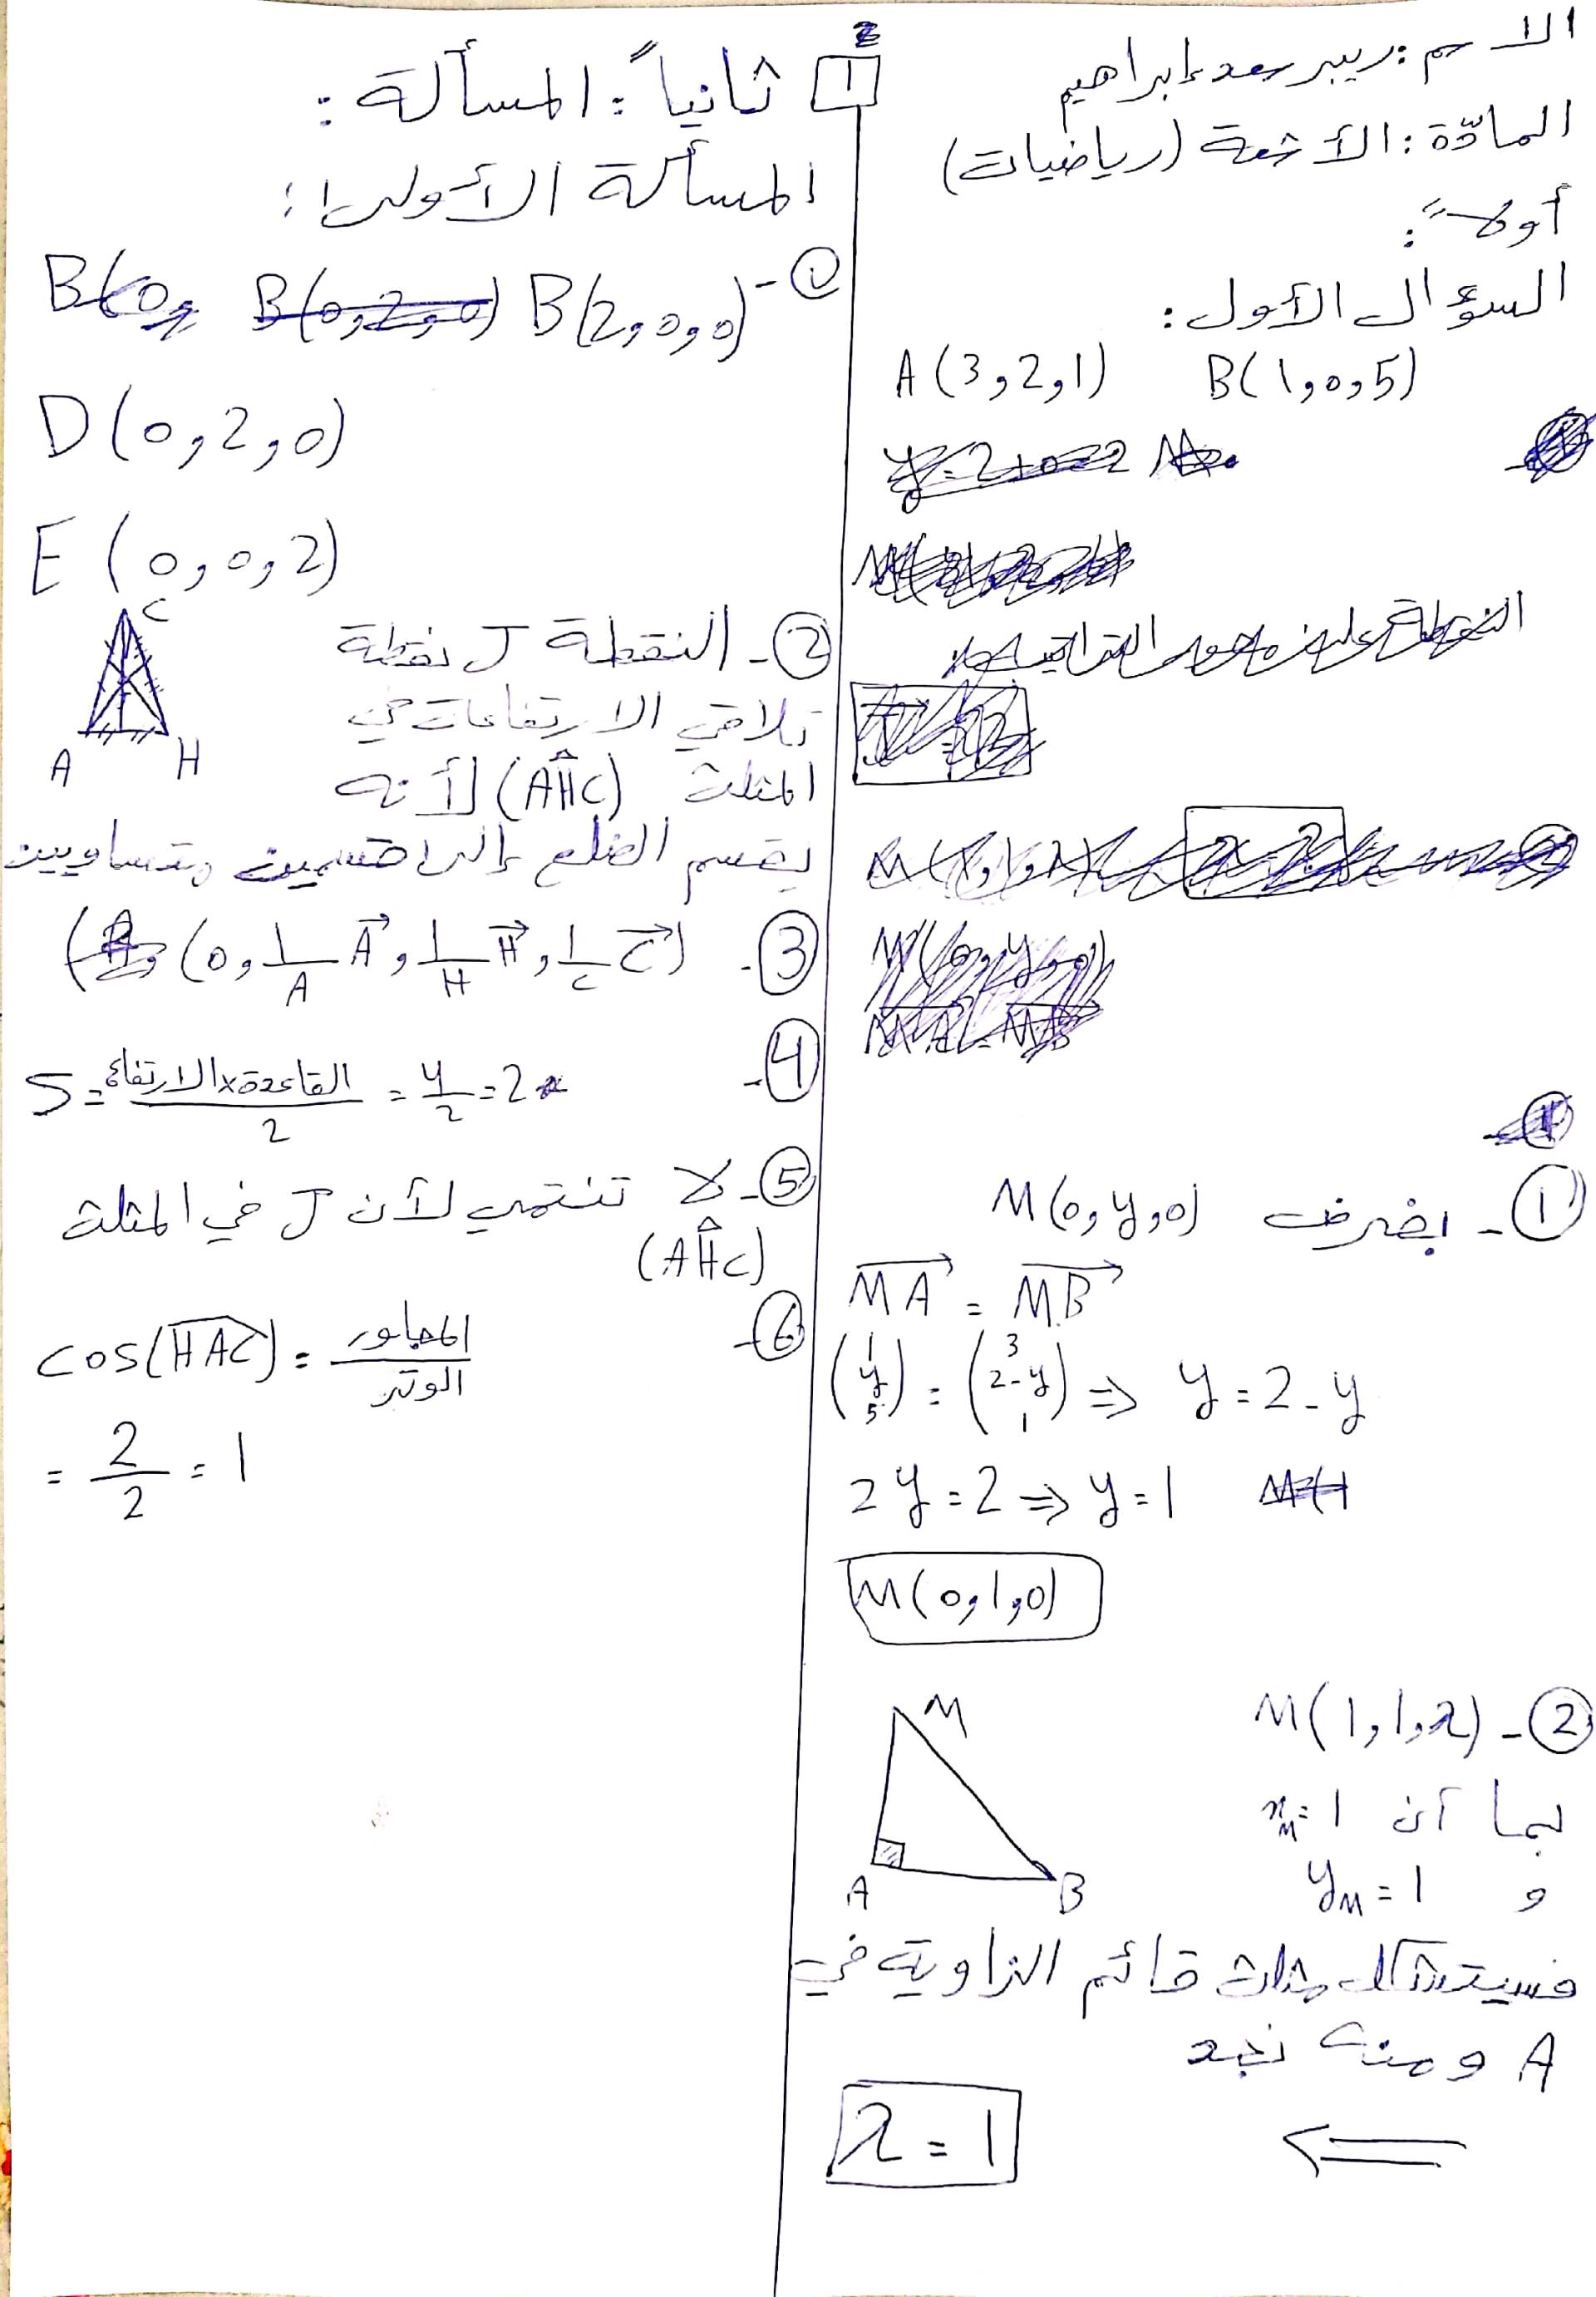 الاسم: ريبر سعد إبراهيم
المادّة: الأشعة (رياضيات)
أولاً:
السؤال الأول:
A(3,2,1) B(1,0,5)
y=2+0=2
① - بفرض M(0,y,0)
MA = MB
(1 y 5) = (3 2-y 1) ⇒ y = 2-y
2y=2 ⇒ y=1
M(0,1,0)
② - M(1,1,λ)
M
A B
بما أن x_M=1
و y_M=1
فسيتشكل مثلث قائم الزاوية في
A ومنه نجد
⇐
λ = 1
2
1
ثانياً: المسألة:
المسألة الأولى:
① - B(2,0,0) B(0,2,0) B(0,
D(0,2,0)
E(0,0,2)
② - النقطة J نقطة
تلاقي الارتفاعات في
المثلث (AHC) لأنه
يقسم الضلع إلى قسمين متساويين
C
A H
③ - (0, 1/A A, 1/H H, 1/C C)
④ - S = القاعدة×الارتفاع / 2 = 4/2 = 2
⑤ - لا تنتمي لأن J في المثلث
(AHC)
⑥ - cos(HAC) = المجاور / الوتر
= 2/2 = 1